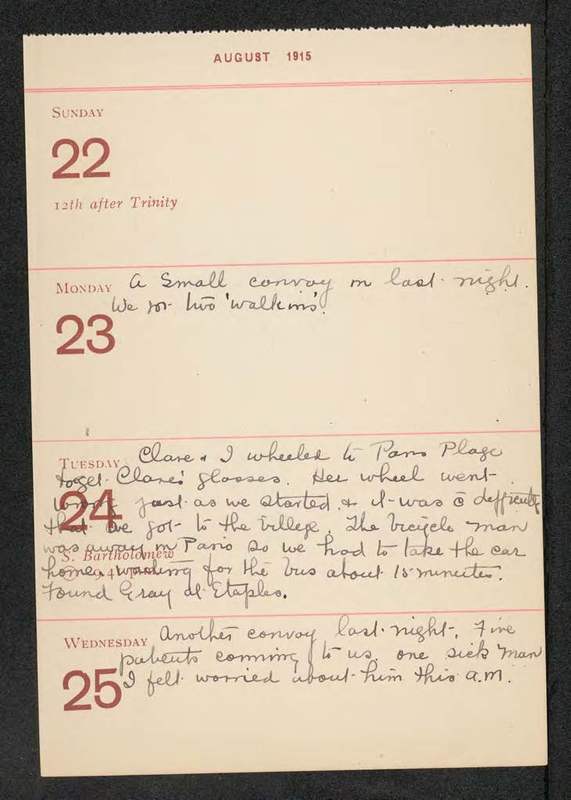 AUGUST 1915
SUNDAY
22
12th after Trinity
MONDAY
23
A Small convoy in last night.
We got two 'walk ins'.
TUESDAY
24
S. Bartholomew
Clare & I wheeled to Paris Plage
to get Clare's glasses. Her wheel went
wrong just as we started & it was c̄ difficulty
that we got to the village. The bicycle man
was away in Paris so we had to take the car
home, waiting for the bus about 15 minutes.
Found Gray at Etaples.
WEDNESDAY
25
Another convoy last night. Five
patients coming to us, one sick man
I felt worried about him this a.m.